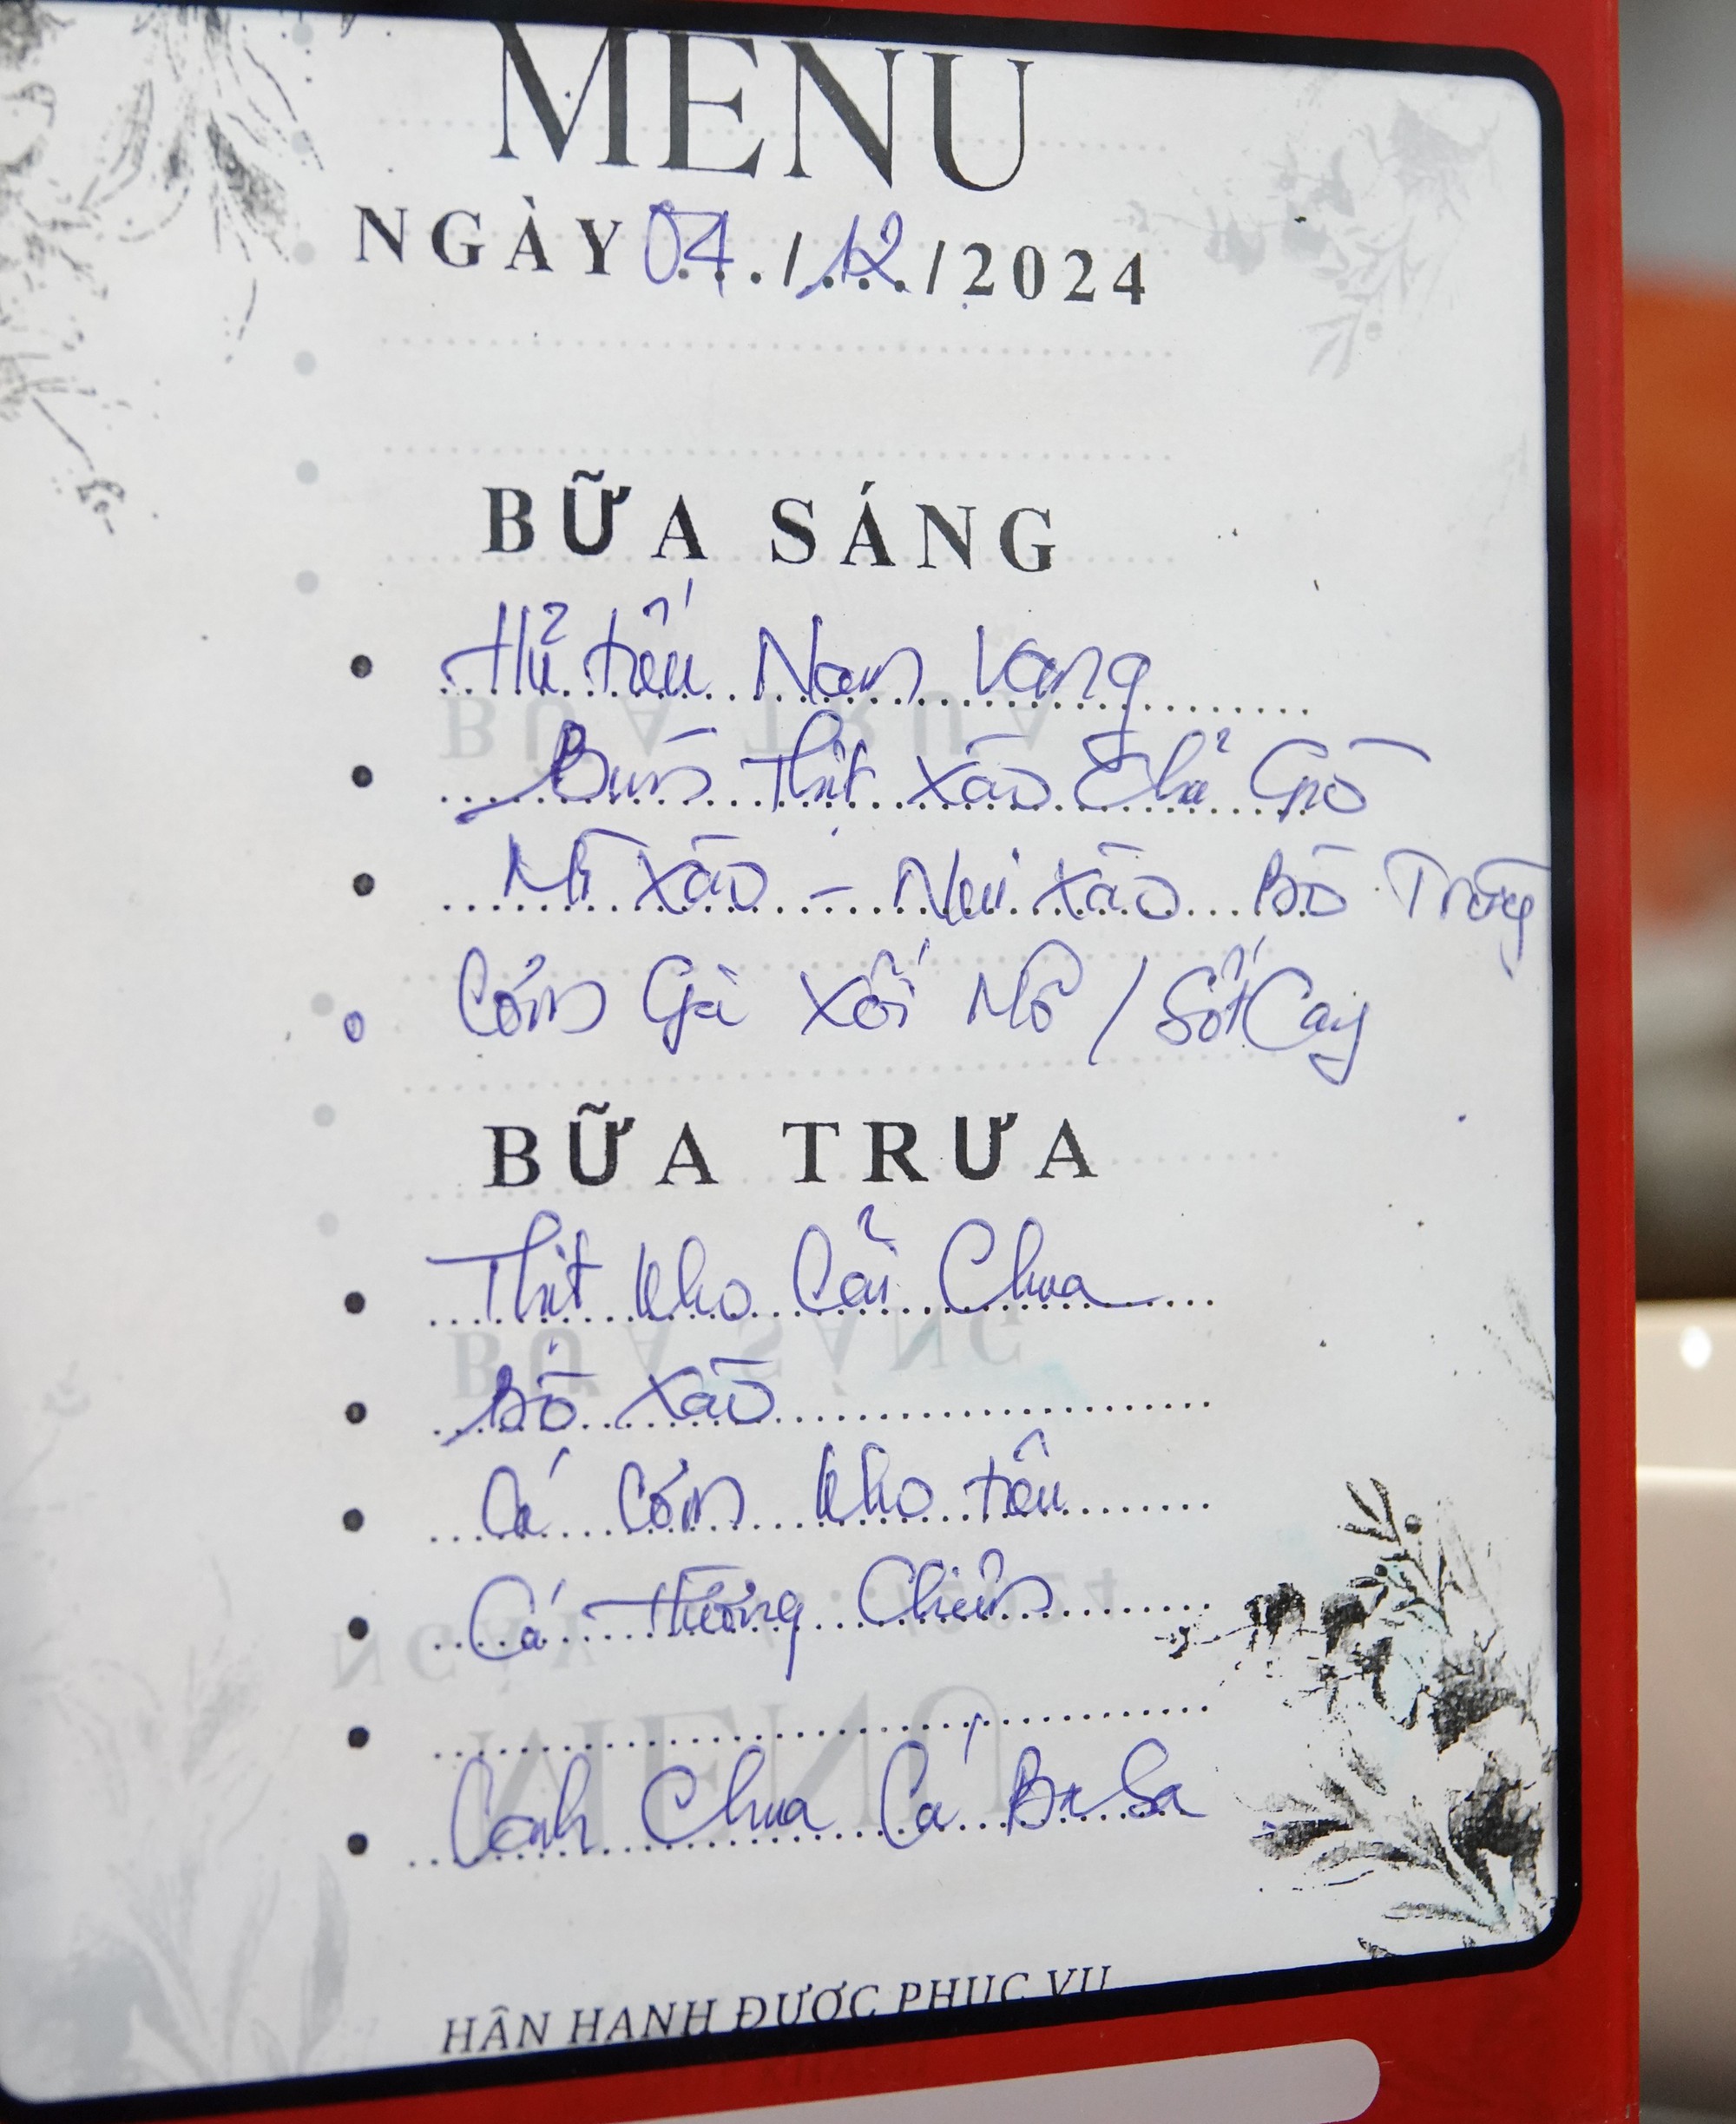 MENU
NGÀY 04/12/2024
BỮA SÁNG
Hủ tiếu Nam Vang
Bún Thịt Xào Chả Giò
Mì Xào - Nui Xào Bò Trứng
Cơm Gà Xối Mỡ / Sốt Cay
BỮA TRƯA
Thịt kho Cải Chua
Bò Xào
Cá Cơm kho tiêu
Cá Hường Chiên
Canh Chua Cá Ba Sa
HÂN HẠNH ĐƯỢC PHỤC VỤ